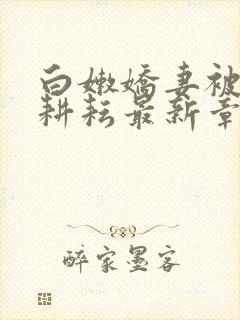 白嫩嬌妻被
耕耘最新章
醉家墨客